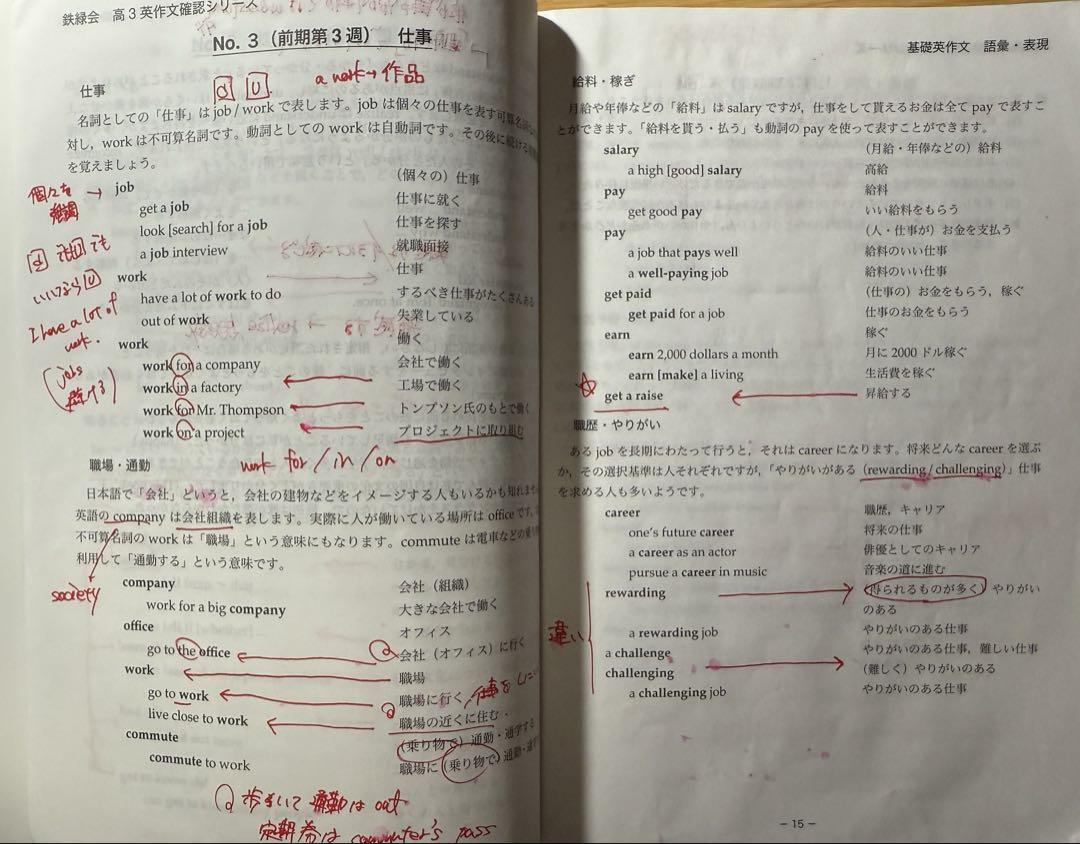 鉄緑会 高3英作文確認シリーズ
No. 3（前期第3週） 仕事
仕事
C U
a work → 作品
名詞としての「仕事」は job / work で表します。job は個々の仕事を表す可算名詞
対し，work は不可算名詞です。動詞としての work は自動詞です。その後に続ける
を覚えましょう。
個々を強調 →
job （個々の）仕事
get a job 仕事に就く
look [search] for a job 仕事を探す
a job interview 就職面接
C でも U でも
いいなら U
I have a lot of
work.
work 仕事
have a lot of work to do するべき仕事がたくさんある
out of work 失業している
work 働く
work for a company 会社で働く
work in a factory 工場で働く
work for Mr. Thompson トンプソン氏のもとで働く
work on a project プロジェクトに取り組む
(jobs
避ける)
work for / in / on
職場・通勤
日本語で「会社」というと，会社の建物などをイメージする人もいるかも知れませ
英語の company は会社組織を表します。実際に人が働いている場所は office です。
不可算名詞の work は「職場」という意味にもなります。commute は電車などの乗り
利用して「通勤する」という意味です。
society
company 会社（組織）
work for a big company 大きな会社で働く
office オフィス
go to the office 会社（オフィス）に行く
work 職場
go to work 職場に行く，仕事をしに
live close to work 職場の近くに住む
commute （乗り物で）通勤・通学する
commute to work 職場に（乗り物で）通勤・通学
歩いて通勤は out
定期券は commuter's pass
基礎英作文 語彙・表現
給料・稼ぎ
月給や年俸などの「給料」は salary ですが，仕事をして貰えるお金は全て pay で表すこ
とができます。「給料を貰う・払う」も動詞の pay を使って表すことができます。
salary （月給・年俸などの）給料
a high [good] salary 高給
pay 給料
get good pay いい給料をもらう
pay （人・仕事が）お金を支払う
a job that pays well 給料のいい仕事
a well-paying job 給料のいい仕事
get paid （仕事の）お金をもらう，稼ぐ
get paid for a job 仕事のお金をもらう
earn 稼ぐ
earn 2,000 dollars a month 月に 2000 ドル稼ぐ
earn [make] a living 生活費を稼ぐ
☆ get a raise 昇給する
職歴・やりがい
ある job を長期にわたって行うと，それは career になります。将来どんな career を選ぶ
か，その選択基準は人それぞれですが，「やりがいがある（rewarding / challenging）」仕事
を求める人も多いようです。
career 職歴，キャリア
one's future career 将来の仕事
a career as an actor 俳優としてのキャリア
pursue a career in music 音楽の道に進む
rewarding （得られるものが多く）やりがい
のある
違い
a rewarding job やりがいのある仕事
a challenge やりがいのある仕事，難しい仕事
challenging （難しく）やりがいのある
a challenging job やりがいのある仕事
– 15 –